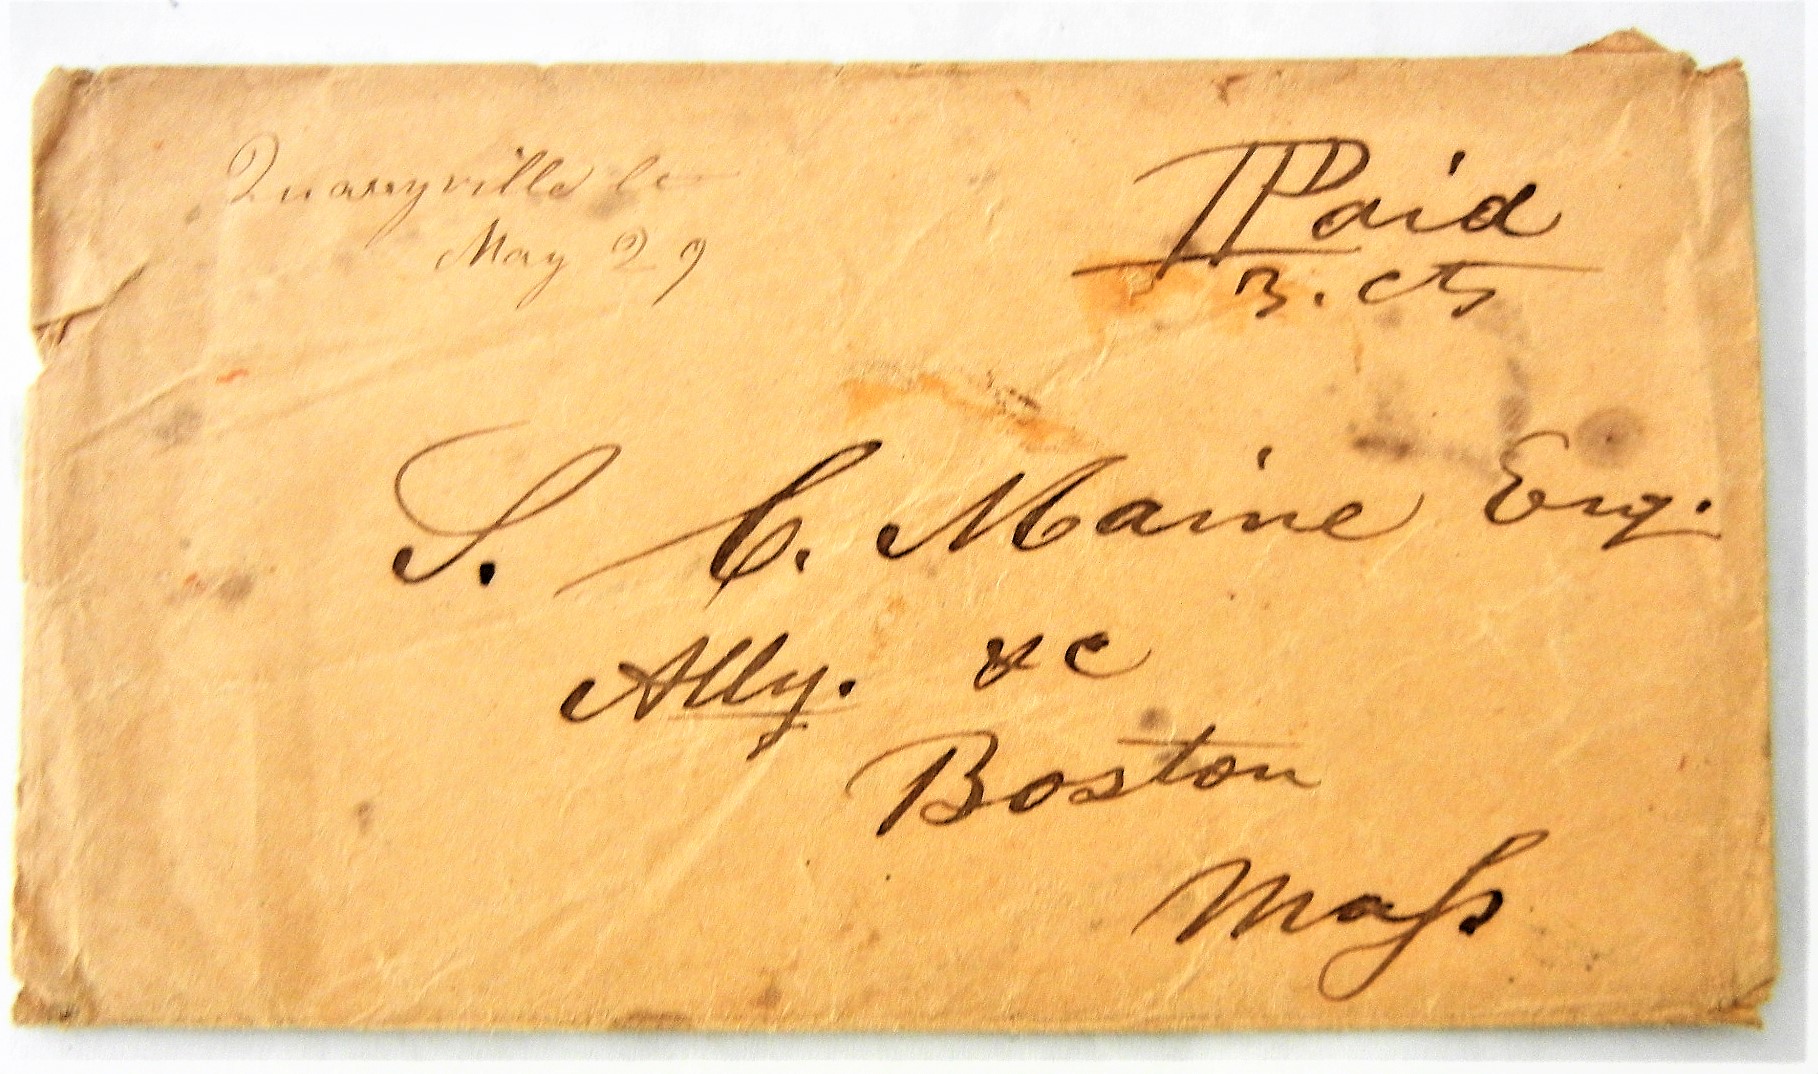 Quarryville Ct
May 29
Paid
3. cts
S. C. Maine Esq.
Atty. &c
Boston
Maſs